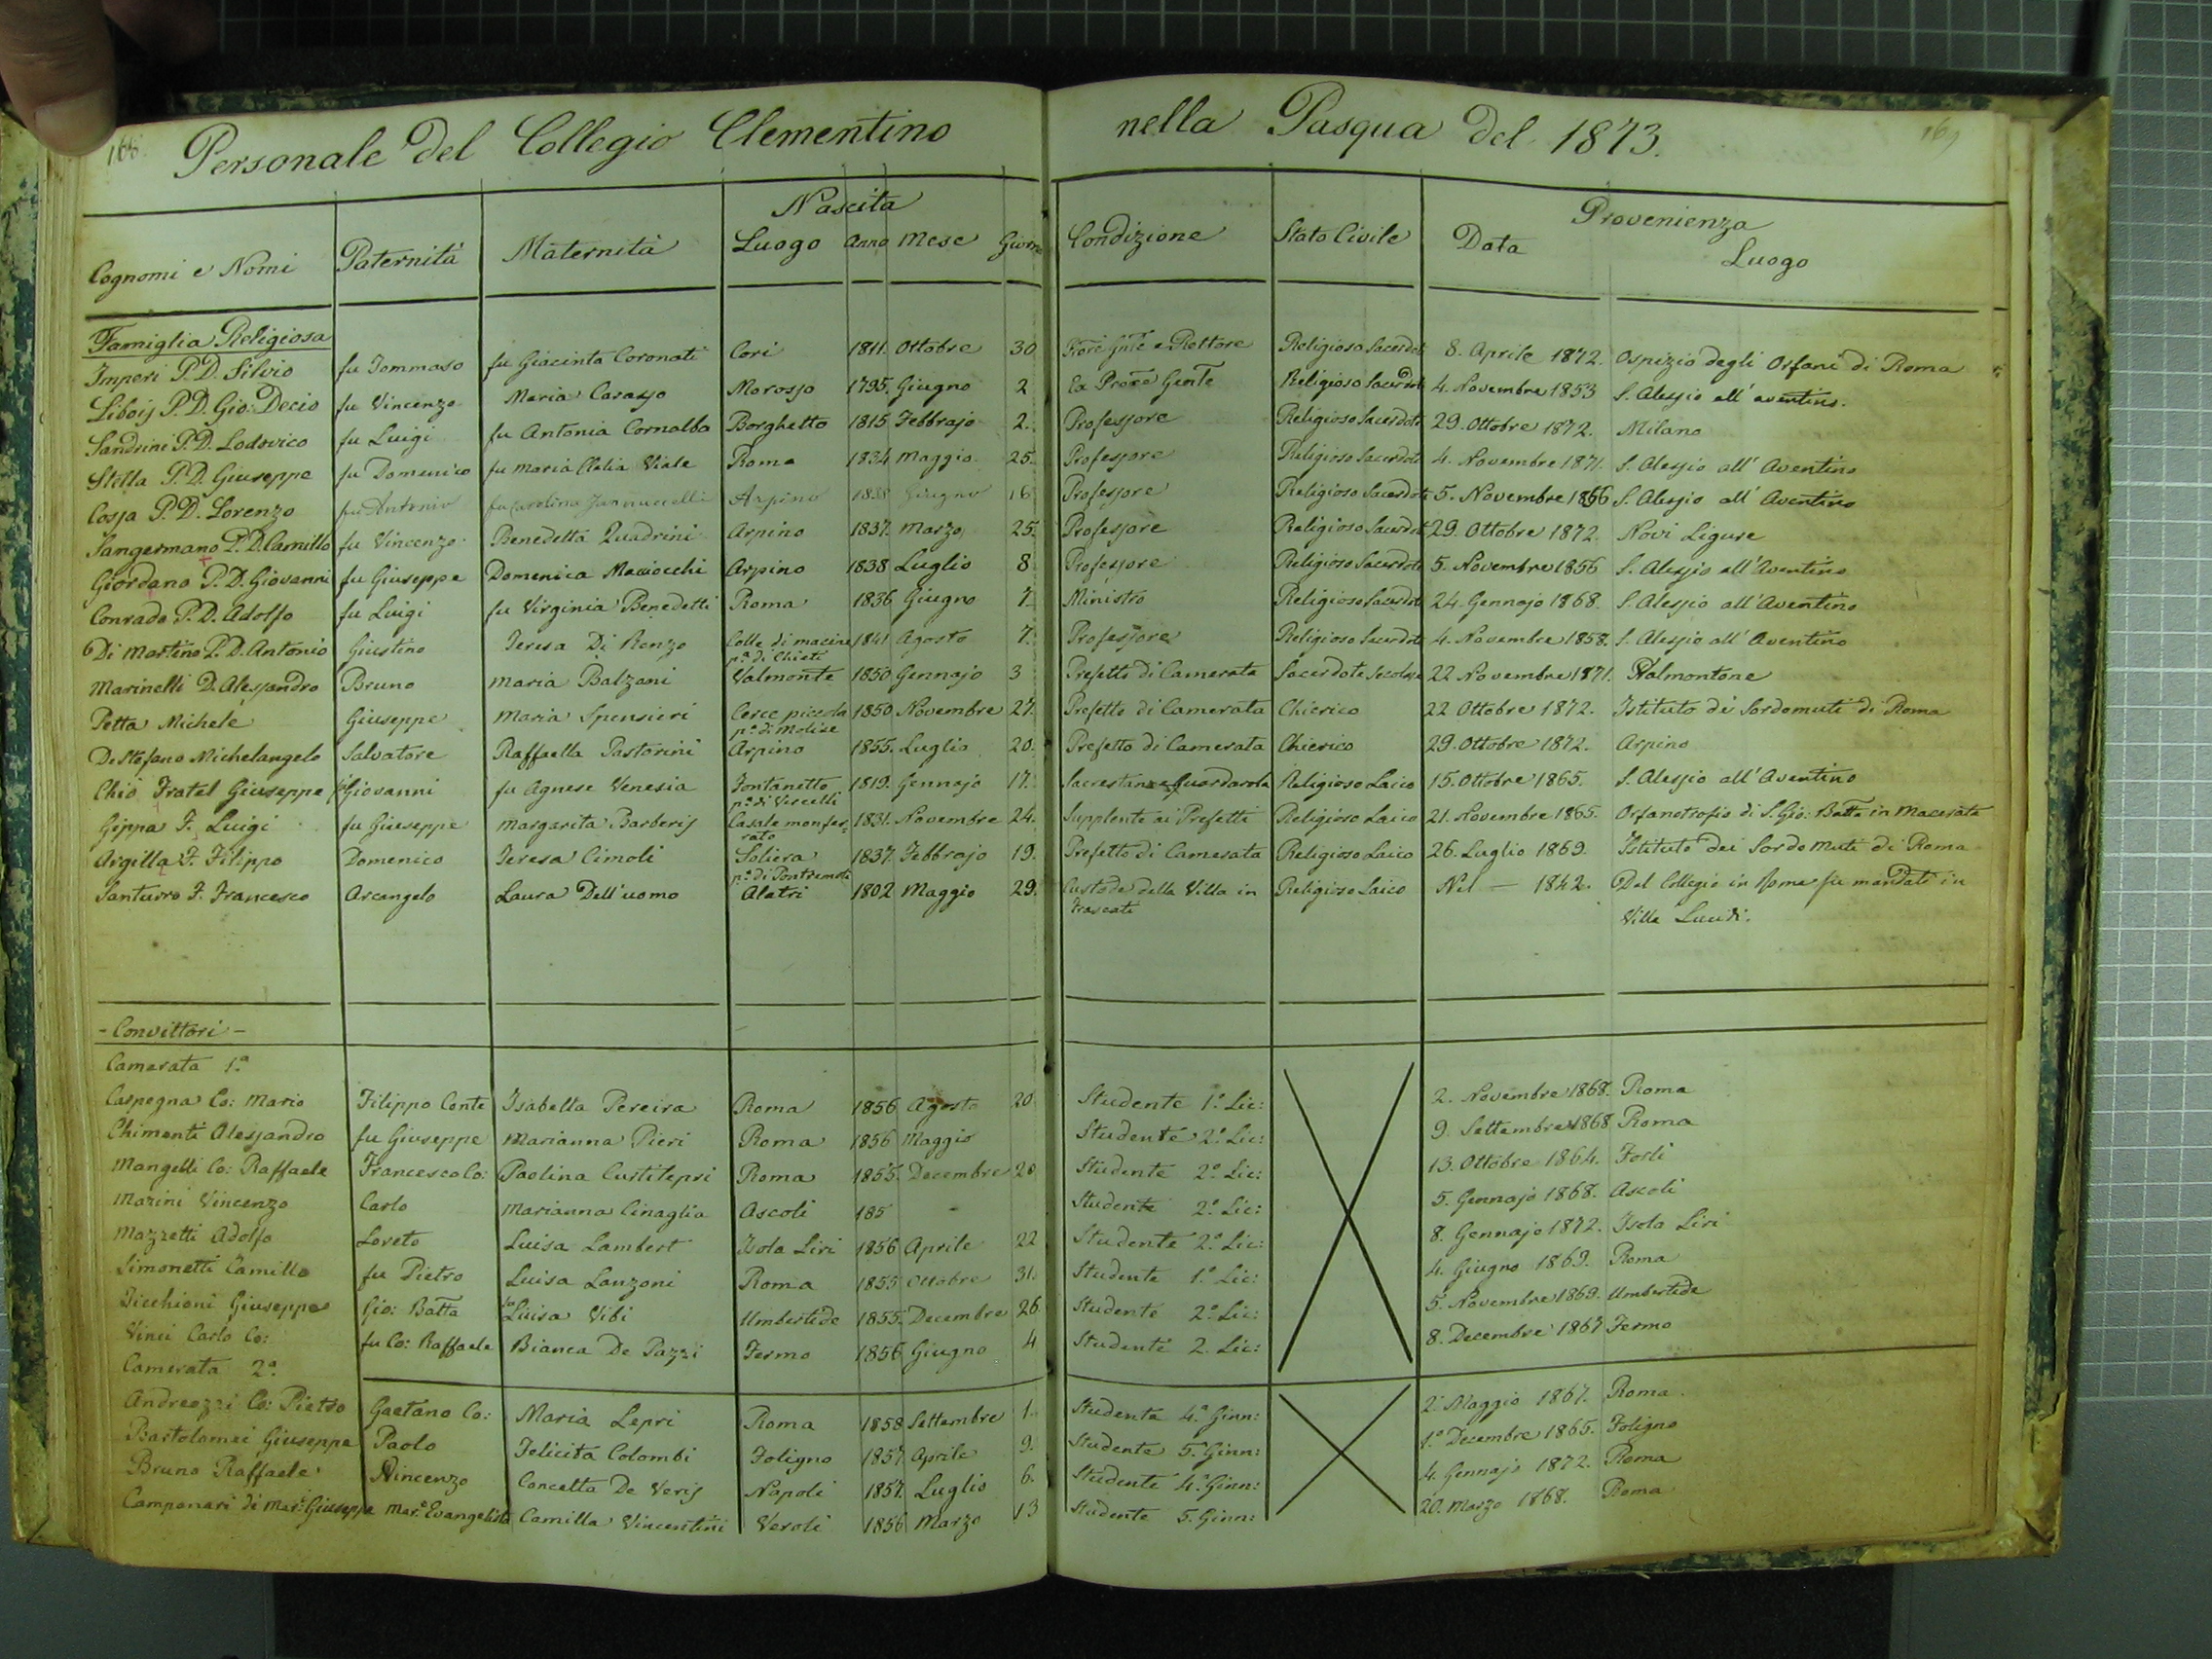 168.
Personale del Collegio Clementino nella Pasqua del 1873.
169
Nascita
Provenienza
Cognomi e Nomi Paternità Maternità Luogo Anno Mese Giorno Condizione Stato Civile Data Luogo
Famiglia Religiosa
Imperi P. D. Silvio fu Tommaso fu Giacinta Coronati Cori 1811. Ottobre 30 e Rettore Religioso Sacerdote 8. Aprile 1872. Ospizio degli Orfani di Roma
Libois P. D. Gio: Decio fu Vincenzo Maria Casasso Morosso 1795. Giugno 2 Ex Religioso Sacerdote 4. Novembre 1853 S. Alessio all' aventino.
Sandrini P. D. Lodovico fu Luigi fu Antonia Cornalba Borghetto 1815 Febbrajo 2. Professore Religioso Sacerdote 29. Ottobre 1872. Milano
Stella P. D. Giuseppe fu Domenico fu Maria Clelia Viale Roma 1834 Maggio 25. Professore Religioso Sacerdote 4. Novembre 1871. S. Alessio all' Aventino
Cossa P. D. Lorenzo fu Antonio fu Carolina Arpino Giugno 16 Professore Religioso Sacerdote 5. Novembre 1856 S. Alessio all' Aventino
Sangermano P. D. Camillo fu Vincenzo Benedetta Quadrini Arpino 1837. Marzo 25. Professore Religioso Sacerdote 29. Ottobre 1872. Novi Ligure
Giordano P. D. Giovanni fu Giuseppe Domenica Maciocchi Arpino 1838 Luglio 8 Professore Religioso Sacerdote 5. Novembre 1856 S. Alessio all' Aventino
Conrado P. D. Adolfo fu Luigi fu Virginia Benedetti Roma 1836 Giugno 7. Ministro Religioso Sacerdote 24. Gennajo 1868. S. Alessio all' Aventino
Di Martino P. D. Antonio Giustino Teresa Di Renzo Colle di macine 1841 Agosto 7. Professore Religioso Sacerdote 4. Novembre 1858. S. Alessio all' Aventino
pa. di Chieti
Marinelli D. Alessandro Bruno Maria Balzani Valmonte 1850 Gennajo 3 Prefetto di Camerata Sacerdote Secolare 22 Novembre 1871. Valmontone
Petta Michele Giuseppe Maria Spensieri Cerce piccola 1850 Novembre 27. Prefetto di Camerata Chierico 22 Ottobre 1872. Istituto dei Sordomuti di Roma
pa. di Molise
De Stefano Michelangelo Salvatore Raffaella Pastorini Arpino 1855. Luglio 20. Prefetto di Camerata Chierico 29. Ottobre 1872. Arpino
Chiò Fratel Giuseppe fu Giovanni fu Agnese Venesia Fontanetto 1819. Gennajo 17. Sacrestano e Guardaroba Religioso Laico 15. Ottobre 1865. S. Alessio all' Aventino
pa. di Vercelli
Gippa F. Luigi fu Giuseppe Margarita Barberis Casale monfer- 1831. Novembre 24. Supplente ai Prefetti Religioso Laico 21. Novembre 1865. Orfanotrofio di S. Gio: Batta in Macerata
rato
Argilla F. Filippo Domenico Teresa Cimoli Soliera 1837. Febbrajo 19. Prefetto di Camerata Religioso Laico 26. Luglio 1869. Istituto dei Sordo muti di Roma
pa. di Pontremoli
Santurro F. Francesco Arcangelo Laura Dell'uomo Alatri 1802 Maggio 29. Custode della Villa in Religioso Laico Nel — 1842. Dal Collegio in Roma fu mandato in
Frascati Villa
- Convittori -
Camerata 1.a
Carpegna Co: Mario Filippo Conte Isabella Pereira Roma 1856 Agosto 20 Studente 1.o Lic: 2. Novembre 1868. Roma
Chimenti Alessandro fu Giuseppe Marianna Pieri Roma 1856 Maggio Studente 2.o Lic: 9. Settembre 1868 Roma
Mangelli Co: Raffaele Francesco Co: Paolina Roma 1855. Decembre 20 Studente 2.o Lic: 13. Ottobre 1864. Forlì
Marini Vincenzo Carlo Marianna Cinaglia Ascoli 185 Studente 2.o Lic: 5. Gennajo 1868. Ascoli
Mazzetti Adolfo Loreto Luisa Lambert Isola Liri 1856 Aprile 22 Studente 2.o Lic: 8. Gennajo 1872. Isola Liri
Simonetti Camillo fu Pietro Luisa Lanzoni Roma 1855 Ottobre 31. Studente 1.o Lic: 4. Giugno 1869. Roma
Picchioni Giuseppe Gio: Batta Luisa Vibi Umbertide 1855. Decembre 26 Studente 2.o Lic: 5. Novembre 1869. Umbertide
Vinci Carlo Co: fu Co: Raffaele Bianca De Pazzi Fermo 1856 Giugno 4 Studente 2. Lic: 8. Decembre 1867 Fermo
Camerata 2.a
Andreozzi Co: Pietro Gaetano Co: Maria Lepri Roma 1858 Settembre 1. Studente 4.a Ginn: 2. Maggio 1867. Roma
Bartolomei Giuseppe Paolo Felicita Colombi Foligno 1857. Aprile 9. Studente 5. Ginn: 1.o Decembre 1865. Foligno
Bruno Raffaele Vincenzo Concetta De Veris Napoli 1857. Luglio 6. Studente 4.a Ginn: 4. Gennajo 1872. Roma
Campanari di Mar. Giuseppe Mar. Evangelista Camilla Vincentini Veroli 1856 Marzo 13 Studente 5. Ginn: 20. Marzo 1868. Roma